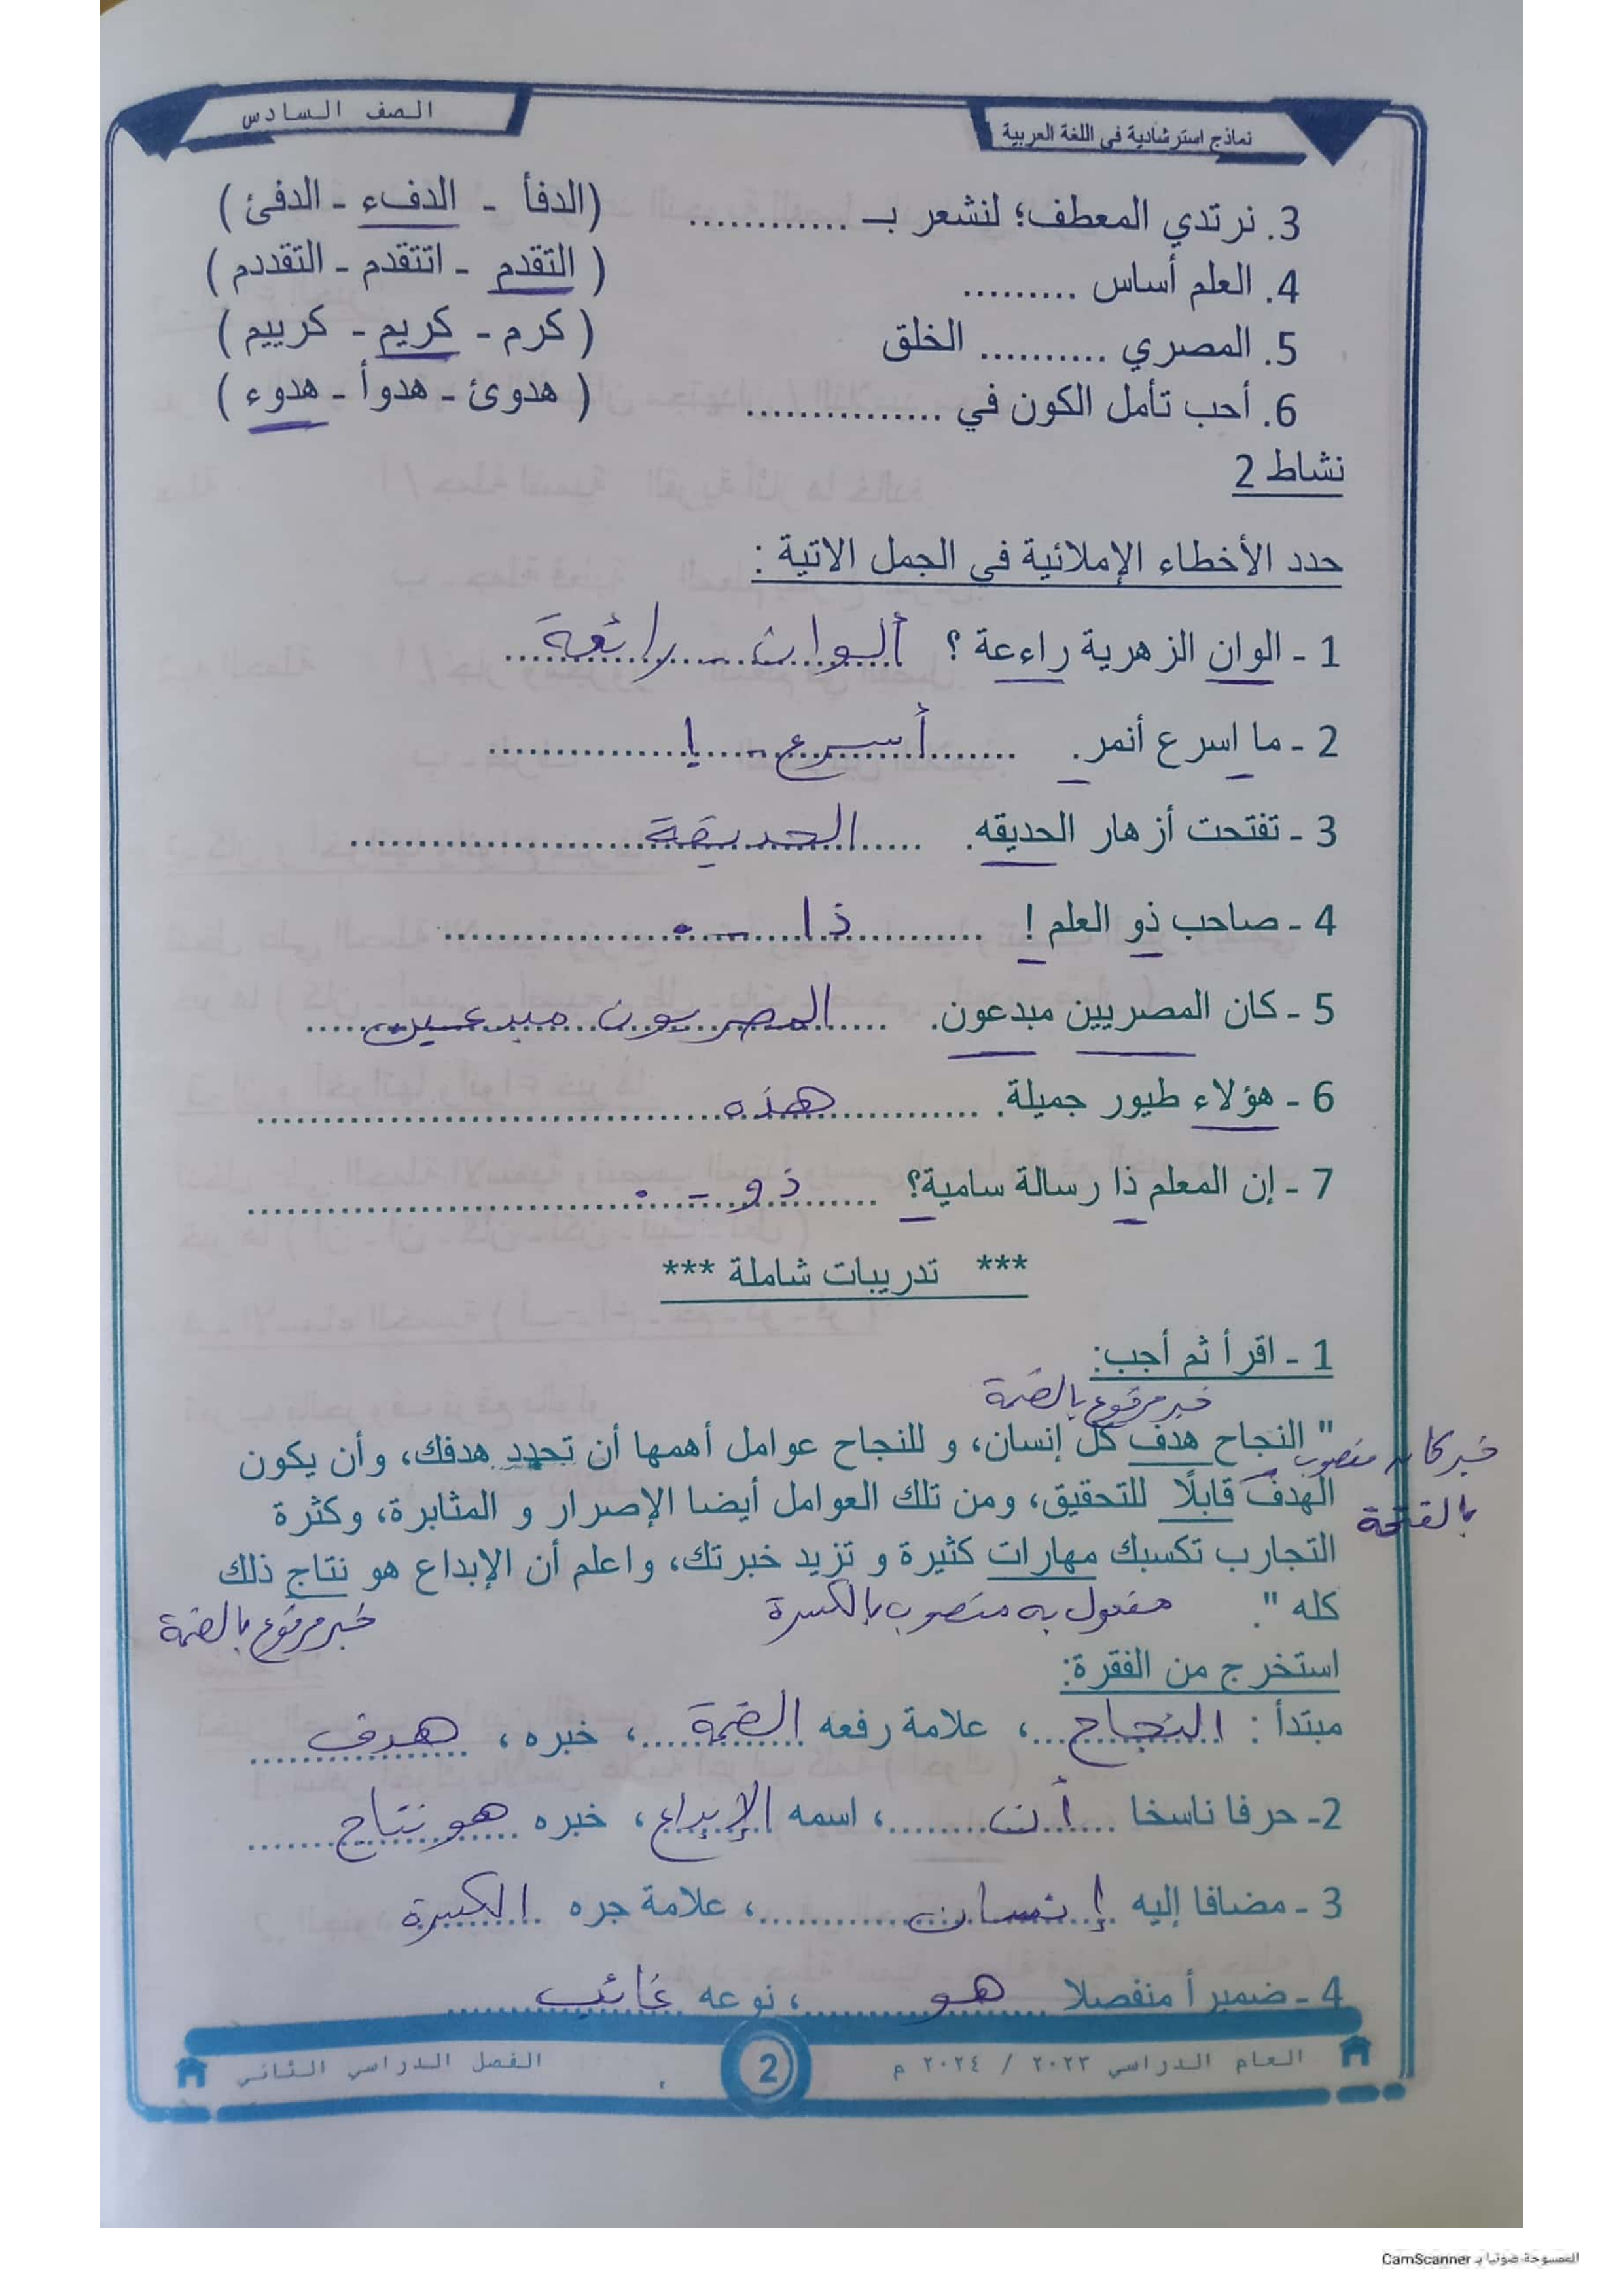 الصف السادس
نماذج استرشادية فى اللغة العربية
3. نرتدي المعطف؛ لنشعر بـ ............ (الدفأ - الدفء - الدفئ )
4. العلم أساس ......... ( التقدم - اتتقدم - التقددم )
5. المصري .......... الخلق ( كرم - كريم - كرييم )
6. أحب تأمل الكون في ............... ( هدوئ - هدوأ - هدوء )
نشاط 2
حدد الأخطاء الإملائية فى الجمل الاتية :
1 - الوان الزهرية راءعة ؟ ألوان - رائعة
2 - ما اسرع أنمر. أسرع - !
3 - تفتحت أزهار الحديقه. الحديقة
4 - صاحب ذو العلم ! ذا - .
5 - كان المصريين مبدعون. المصريون مبدعين
6 - هؤلاء طيور جميلة. هذه
7 - إن المعلم ذا رسالة سامية؟ ذو - .
*** تدريبات شاملة ***
1 - اقرأ ثم أجب:
خبر مرفوع بالضمة
" النجاح هدف كل إنسان، و للنجاح عوامل أهمها أن تحدد هدفك، وأن يكون
خبر كان منصوب
الهدف قابلًا للتحقيق، ومن تلك العوامل أيضا الإصرار و المثابرة، وكثرة
بالفتحة
التجارب تكسبك مهارات كثيرة و تزيد خبرتك، واعلم أن الإبداع هو نتاج ذلك
كله ". مفعول به منصوب بالكسرة خبر مرفوع بالضمة
استخرج من الفقرة:
مبتدأ : النجاح ، علامة رفعه الضمة ، خبره ، هدف
2- حرفا ناسخا أن ، اسمه الإبداع ، خبره هو نتاج
3 - مضافا إليه إنسان ، علامة جره الكسرة
4 - ضميرا منفصلا هو ، نوعه غائب
العام الدراسي ٢٠٢٣ / ٢٠٢٤ م
2
الفصل الدراسي الثاني
الممسوحة ضوئيا بـ CamScanner